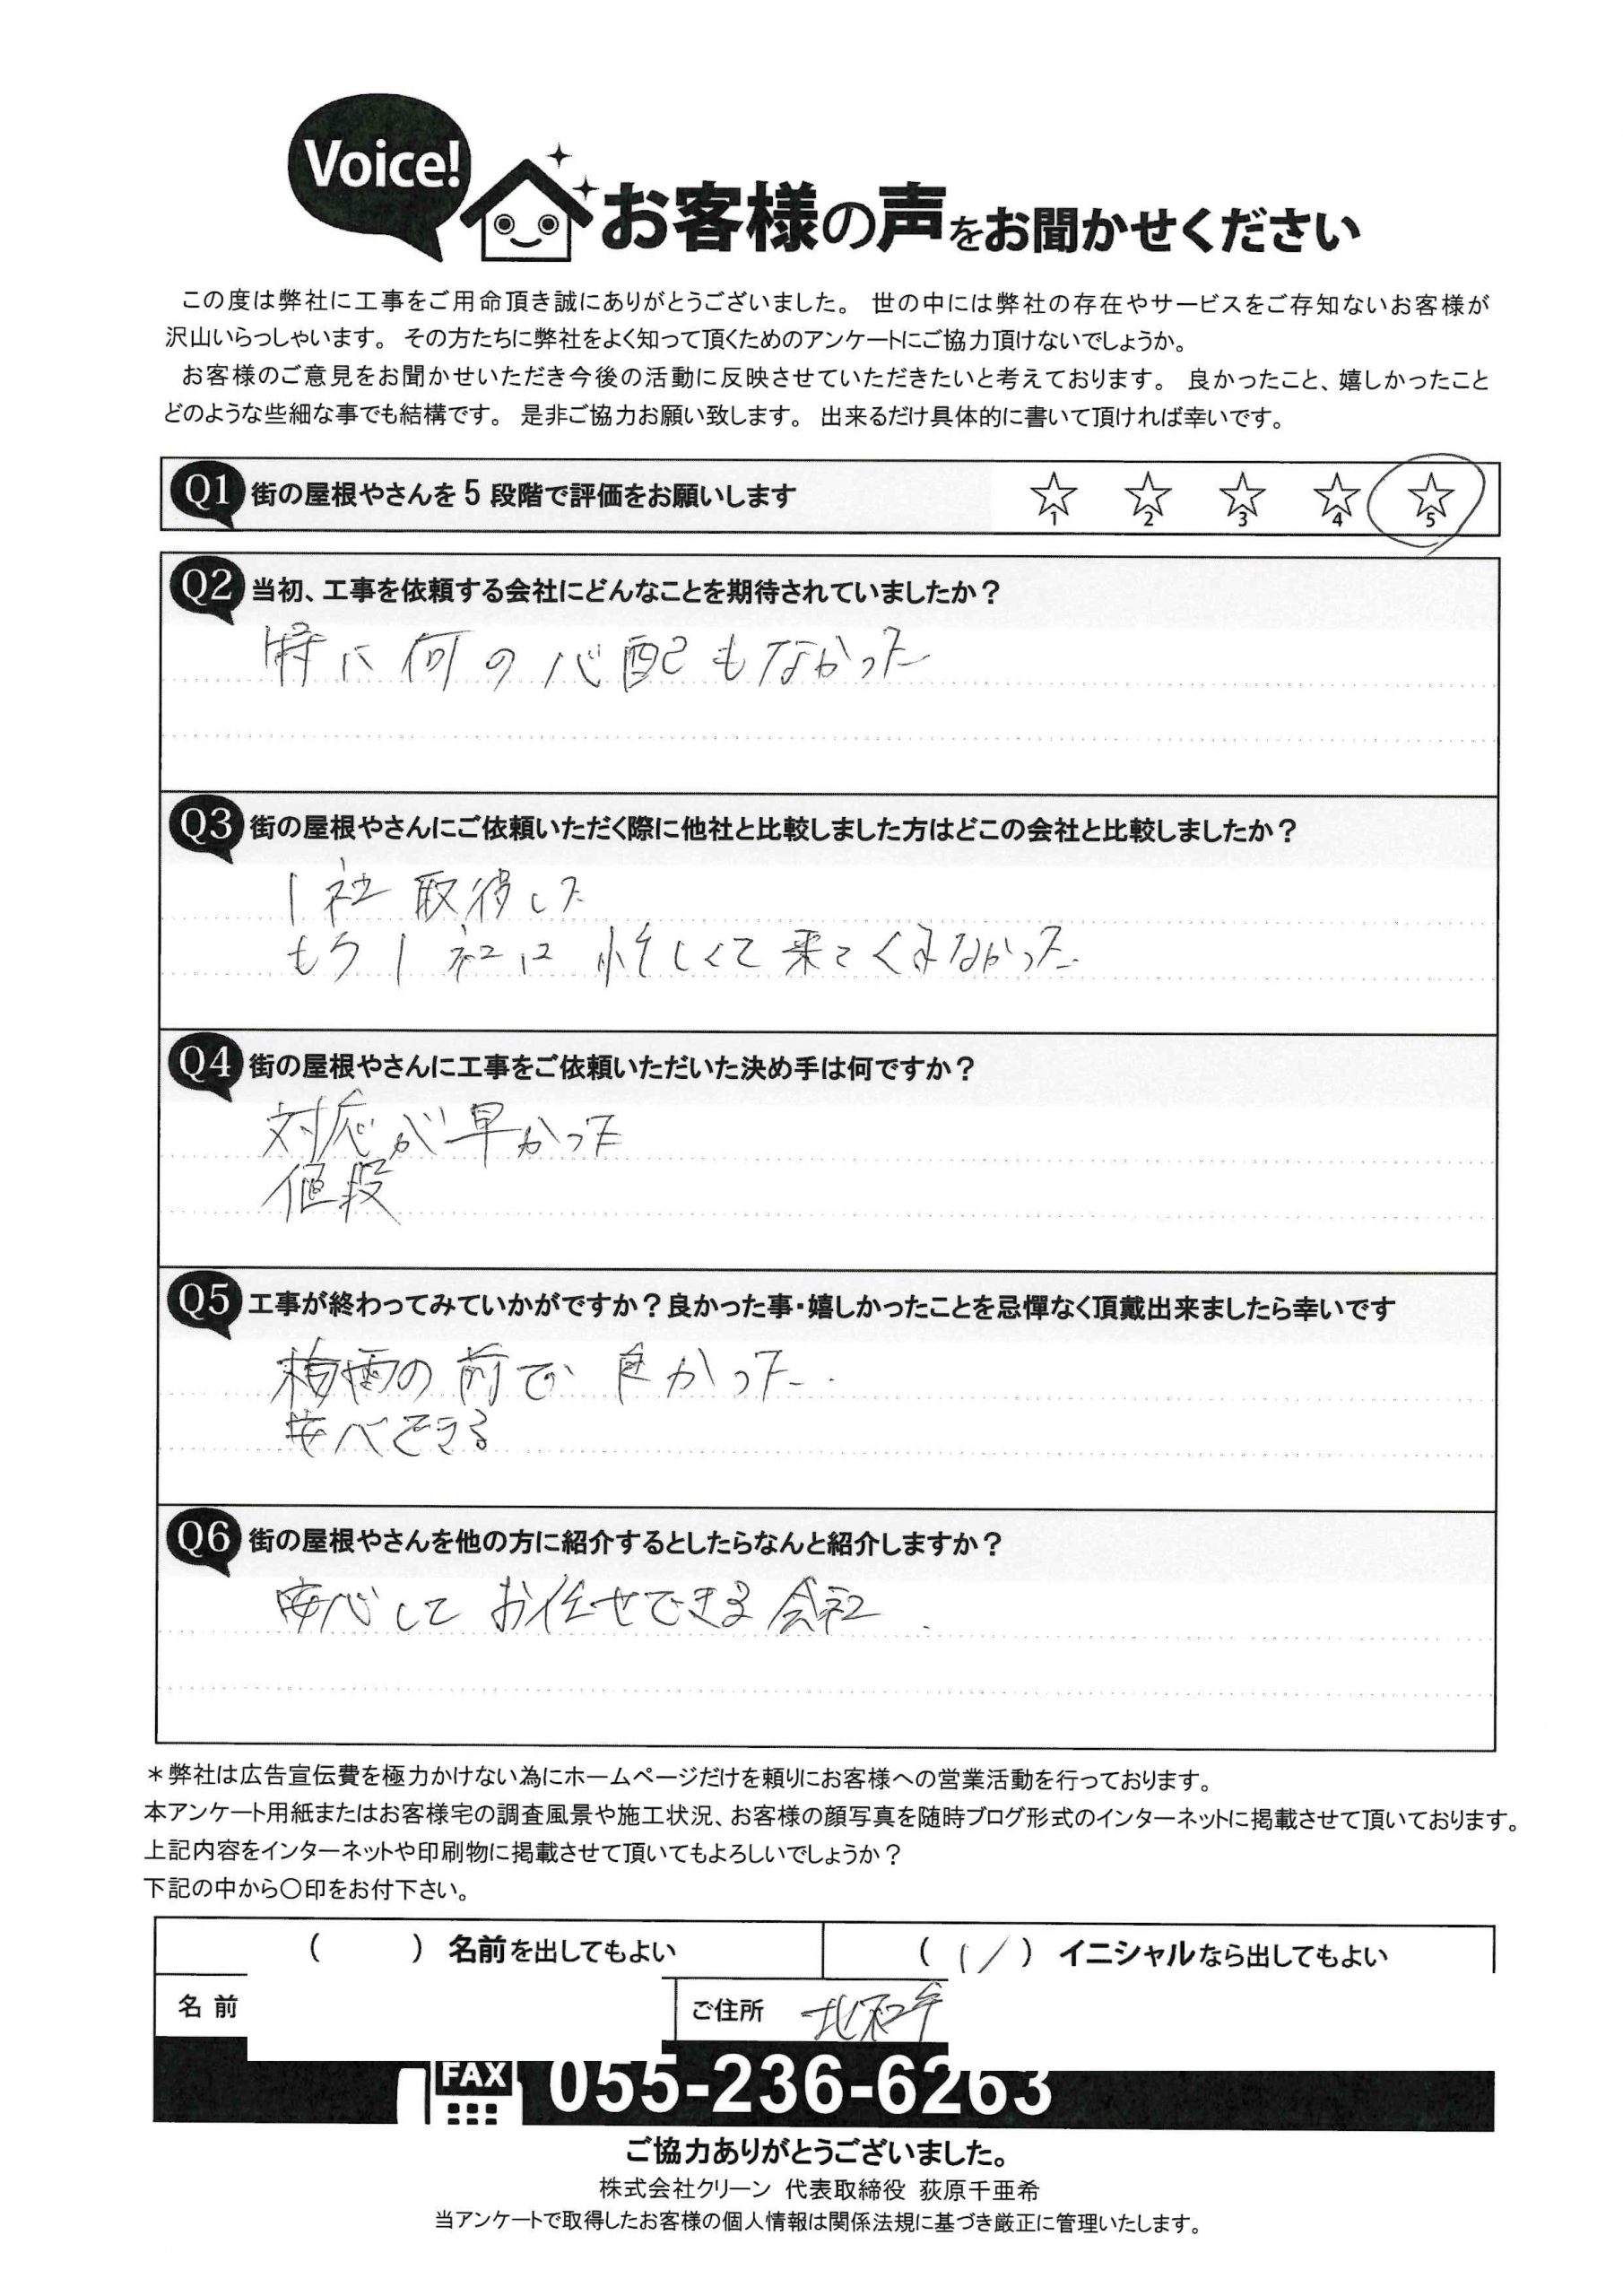 Voice!
お客様の声をお聞かせください
この度は弊社に工事をご用命頂き誠にありがとうございました。 世の中には弊社の存在やサービスをご存知ないお客様が
沢山いらっしゃいます。 その方たちに弊社をよく知って頂くためのアンケートにご協力頂けないでしょうか。
お客様のご意見をお聞かせいただき今後の活動に反映させていただきたいと考えております。 良かったこと、嬉しかったこと
どのような些細な事でも結構です。 是非ご協力お願い致します。 出来るだけ具体的に書いて頂ければ幸いです。
Q1 街の屋根やさんを5段階で評価をお願いします 1 2 3 4 5
Q2 当初、工事を依頼する会社にどんなことを期待されていましたか？
特に何の心配もなかった
Q3 街の屋根やさんにご依頼いただく際に他社と比較しました方はどこの会社と比較しましたか？
1社取得した
もう1社は忙しくて来てくれなかった.
Q4 街の屋根やさんに工事をご依頼いただいた決め手は何ですか？
対応が早かった
値段
Q5 工事が終わってみていかがですか？良かった事・嬉しかったことを忌憚なく頂戴出来ましたら幸いです
梅雨の前で良かった.
安心できる
Q6 街の屋根やさんを他の方に紹介するとしたらなんと紹介しますか？
安心してお任せできる会社.
＊弊社は広告宣伝費を極力かけない為にホームページだけを頼りにお客様への営業活動を行っております。
本アンケート用紙またはお客様宅の調査風景や施工状況、お客様の顔写真を随時ブログ形式のインターネットに掲載させて頂いております。
上記内容をインターネットや印刷物に掲載させて頂いてもよろしいでしょうか？
下記の中から〇印をお付下さい。
（　　）名前を出してもよい （　　）イニシャルなら出してもよい
名前 ご住所
FAX 055-236-6263
ご協力ありがとうございました。
株式会社クリーン 代表取締役 荻原千亜希
当アンケートで取得したお客様の個人情報は関係法規に基づき厳正に管理いたします。